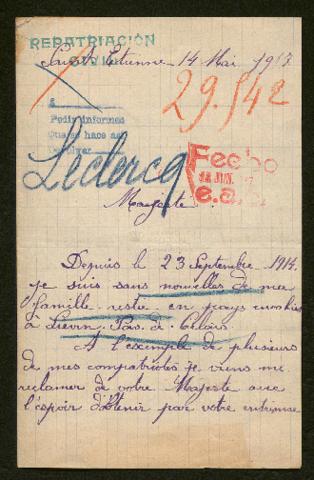 REPATRIACIÓN
Saint Etienne - 14 Mai 1917.
29.542
Pedir informes
que se hace as
Leclercq
Fecho
JUN.
e.a.
Majesté
Depuis le 23 Septembre 1914.
je suis sans nouvelles de ma
famille restée en pays envahies
à Lievin. Pas. de Calais.
A l'exemple de plusieurs
de mes compatriotes je viens me
réclamer de votre Majesté avec
l'espoir d'obtenir par votre entremise